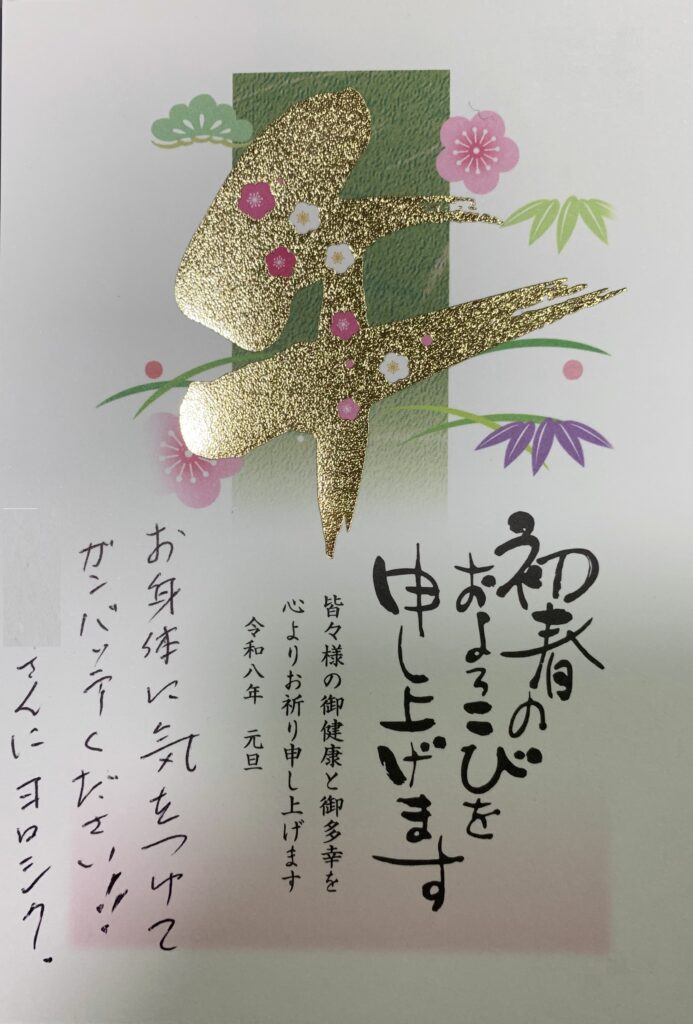 午
初春の
およろこびを
申し上げます
皆々様の御健康と御多幸を
心よりお祈り申し上げます
令和八年　元旦
お身体に気をつけて
ガンバッテください!!
さんにヨロシク.